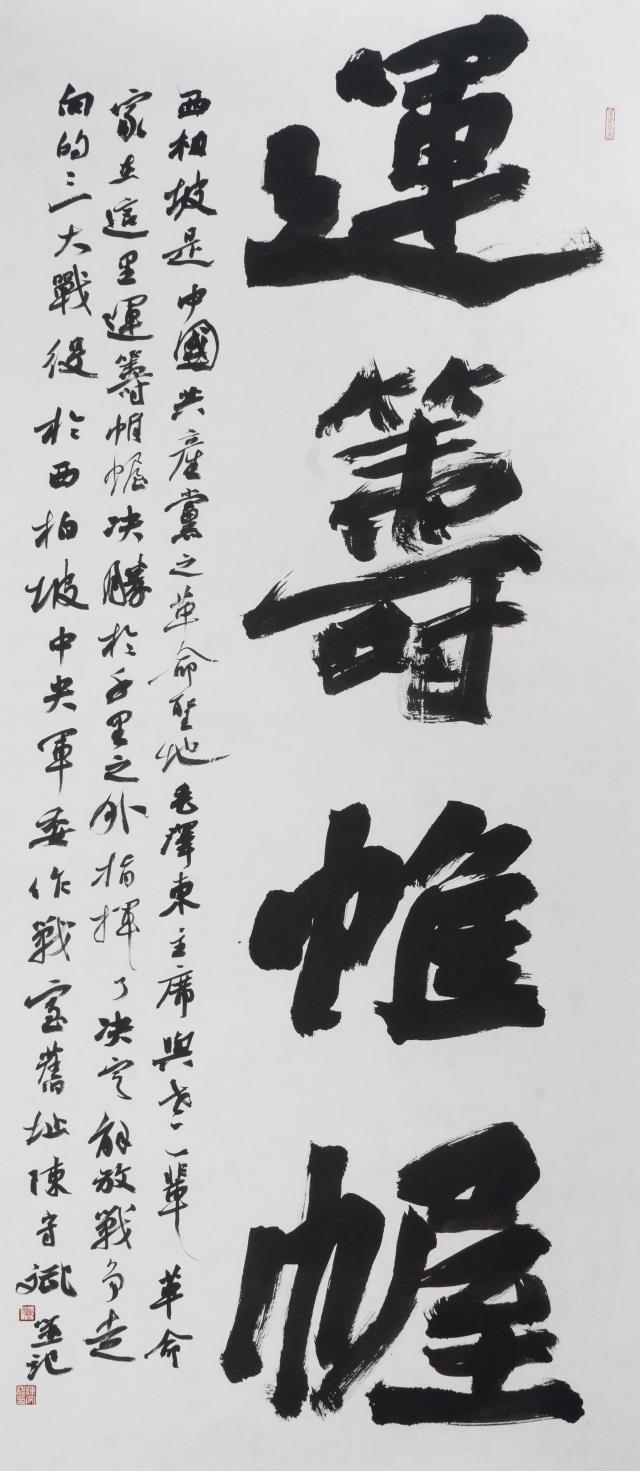 運籌帷幄
西柏坡是中國共產黨之革命聖地毛澤東主席與老一輩革命
家在這里運籌帷幄决勝於千里之外指揮了决定解放戰爭走
向的三大戰役於西柏坡中央軍委作戰室舊址陳守斌並記